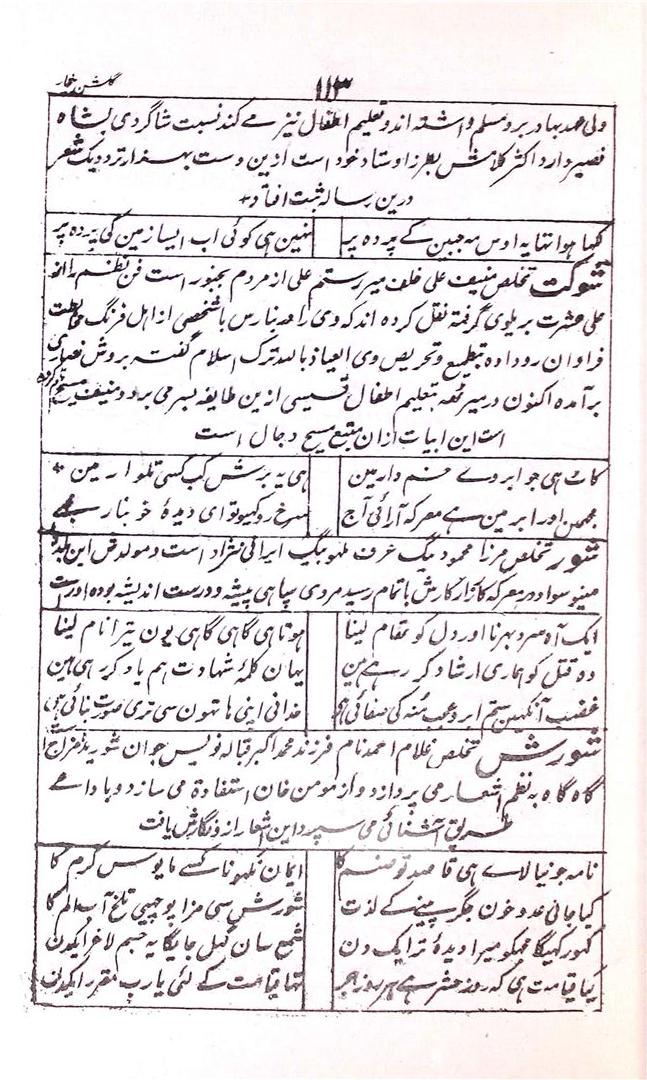 ۱۱۳
گلشن بیخار
ولی عہد بہادر برو مسلم داشتہ اند و تعلیم اطفال نیز مے کند نسبت شاگردی بشاہ
نصیر دارد اکثر کلامش بطرز اوستاد خود است ازین دست بہذار تر دویک شعر
درین رسالہ ثبت افتاد
لکھا ہوا تھا یہ اوس مہ جبین کے پردہ پر
نہین ہی کوئی اب ایسا زمین کی پردہ پر
شوکت تخلص منیف علی خلف میر رستم علی از مردم بجنور است فن نظم را از
علی عشرت بریلوی گرفتہ نقل کردہ اند کہ وی را در بنارس با شخصی از اہل فرنگ مخالطت
فراوان رو دادہ بتطمیع و تحریص وی العیاذ باللہ ترک اسلام گفتہ بروش نصاری
برآمدہ اکنون در میرٹھ بتعلیم اطفال قسیسی ازین طایفہ بسر می برد و منیف مسیح
است این ابیات ازان متبع مسیح دجال است
کاٹ ہی جو ابروے خم دار مین
ہی یہ برش کب کسی تلوار مین
مجھمین اور ابر مین ہے معرکہ آرائی آج
سرخ رو کیجیو تو ای دیدۂ خونبار مجھے
شور تخلص مرزا محمود بیگ عرف ملہو بیگ ایرانی نژاد است و مولدش این بلدۂ
مینو سواد در معرکہ کارزار کارش باتمام رسید مردی سپاہی پیشہ و درست اندیشہ بودہ اوراست
ایک آہ سرد بہرنا اور دل کو تھام لینا
ہوتا ہی گاہی گاہی یون تیرا نام لینا
وہ قتل کو ہماری ارشاد کر رہے ہین
یہان کلمۂ شہادت ہم یاد کر رہی ہین
غضب آنکہین ستم ابرو عجب منہ کی صفائی ہے
خدا نی اپنی ہاتہون سی تری صورت بنائی ہی
شورش تخلص غلام احمد نام فرزند محمد اکبر قبالہ نویس جوان شوریدہ مزاج است
گاہ گاہ بہ نظم اشعار می پردازد و از مومن خان استفادۃ می سازد و با داعے
طریق آشنائی می سپرد این اشعار از و نگارش یافت
نامہ جو نیا لاے ہی قاصد تو صنم کا
ایمان نکہونا کسے مایوس کرم کا
کیا جانی عدو خون جگر پینے کے لذت
شورش سی مزا پوچہیی تلخ آب الم کا
گہور کہیگا مجہکو میرا دیدۂ تر ایک دن
شمع سان گہل جائیگا یہ جسم لاغر ایکدن
کیا قیامت ہی کہ روز حشر ہے ہر روز ہجر
تہا قیامت کے لئی یارب مقرر ایکدن